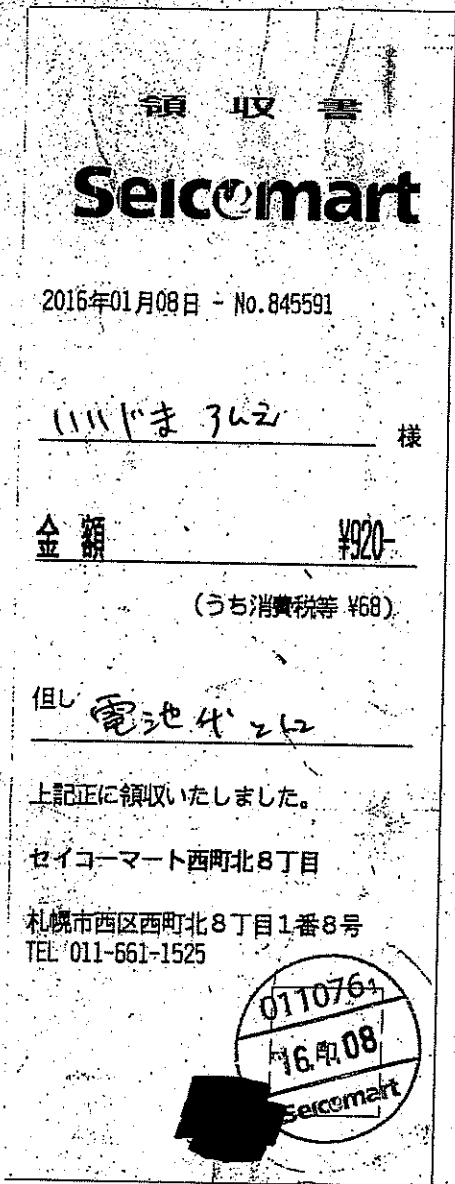 領収書
Seicomart
2016年01月08日 - No.845591
いいじま ひろえ 様
金額 ¥920-
(うち消費税等 ¥68)
但し 電池代として
上記正に領収いたしました。
セイコーマート西町北8丁目
札幌市西区西町北8丁目1番8号
TEL 011-661-1525
011076
16.01.08
Seicomart